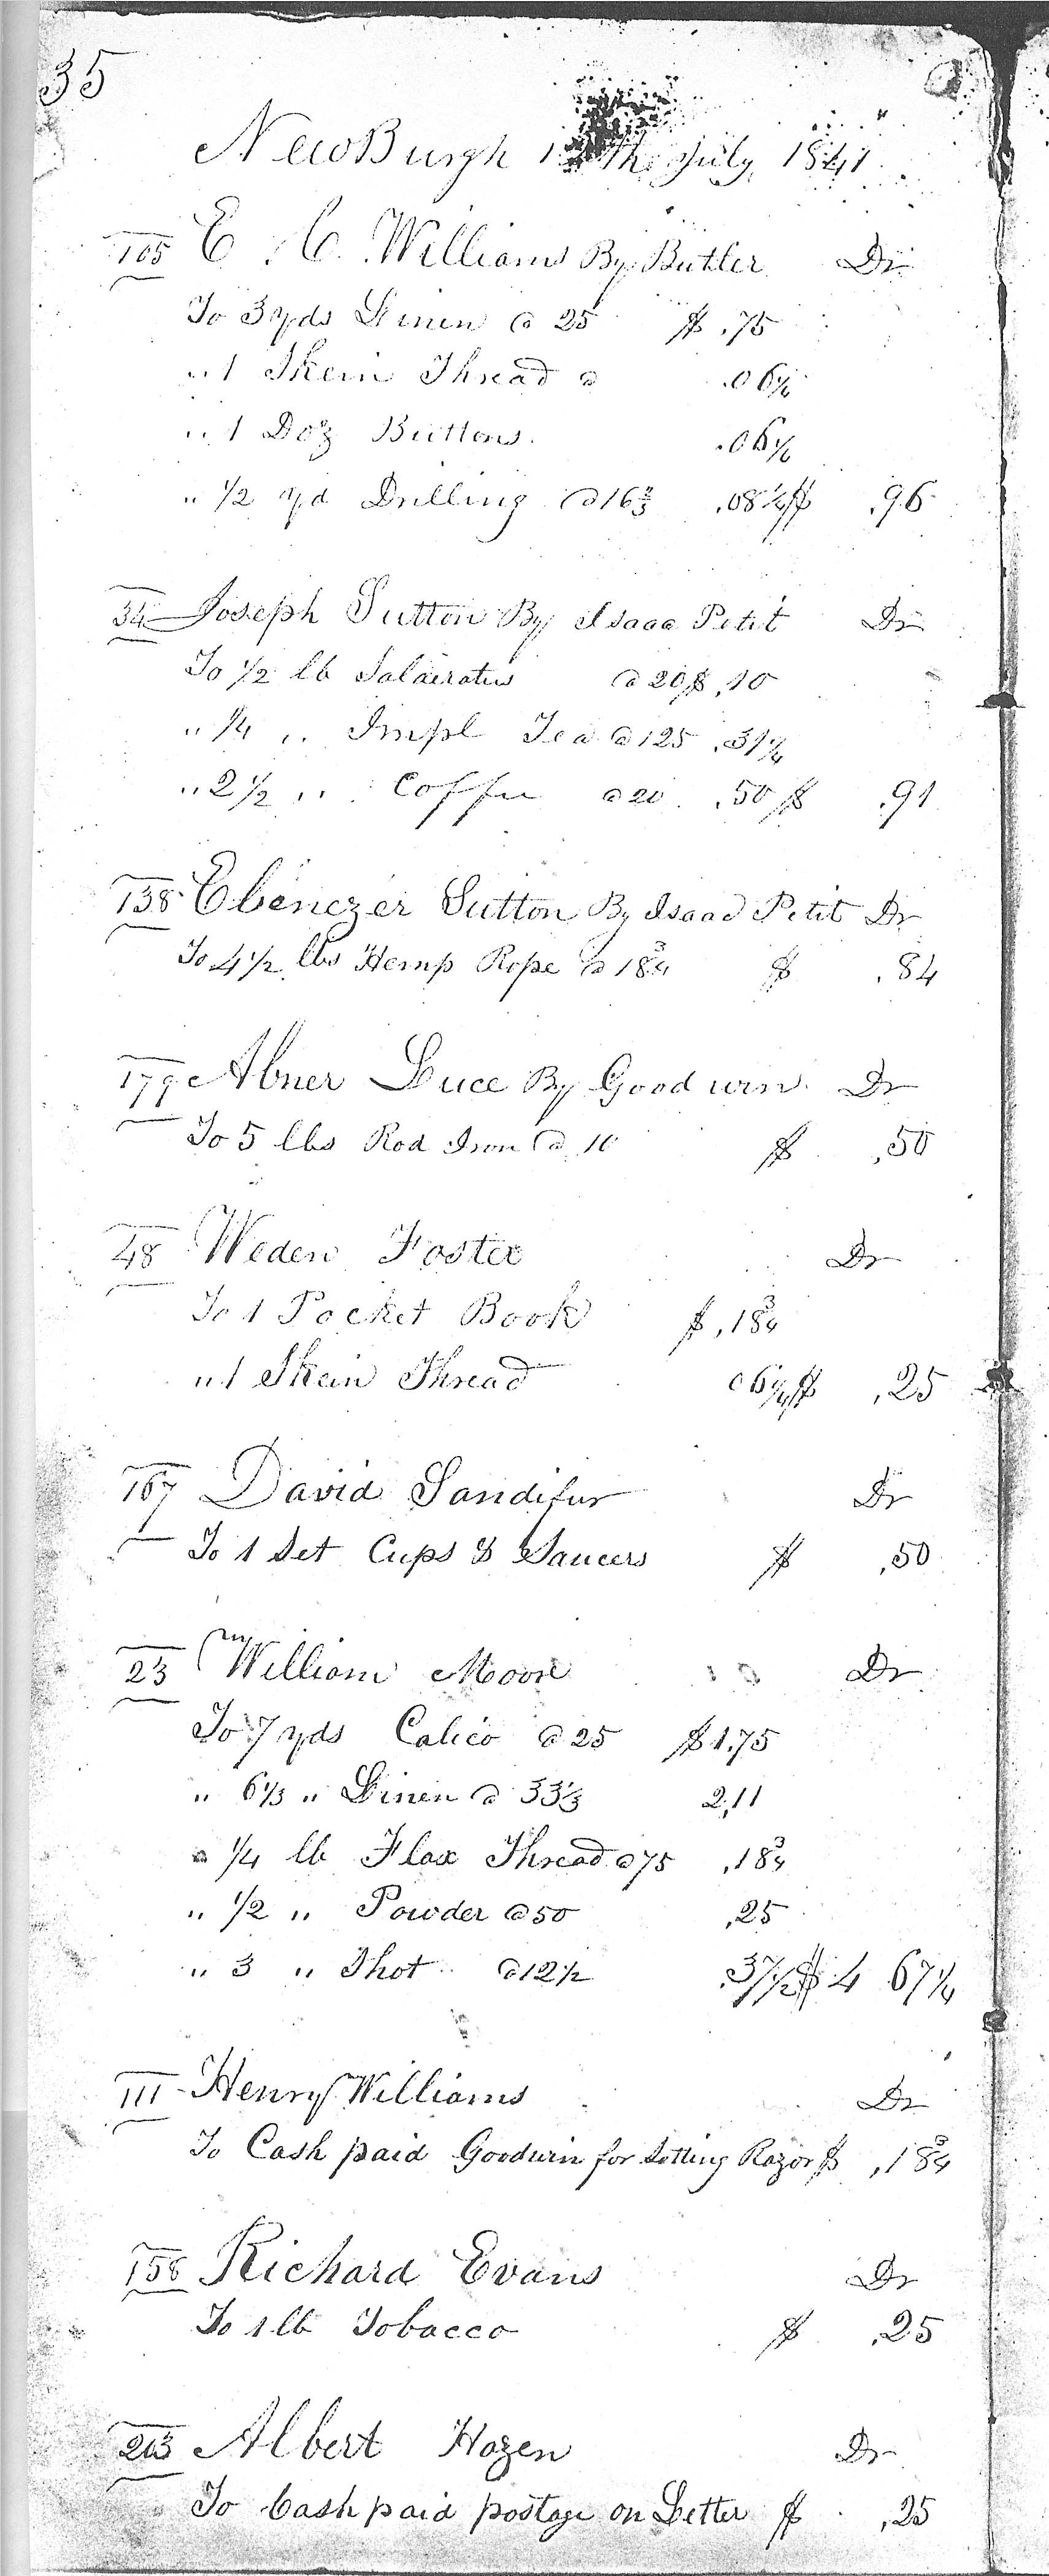 35
NewBurgh 1 th July, 1841
105 E. C. Williams By Butler Dr
To 3 yds Linen @ 25 $ .75
" 1 Skein Thread @ .06¼
" 1 Doz Buttons. .06¼
" 1/2 yd Drilling @ 16⅔ .08¼ $ .96
34 Joseph Sutton By Isaac Petit Dr
To 1/2 lb Salaeratus @ 20 $ .10
" 1/4 " Impl Tea @ 125 .31¼
" 2 1/2 " Coffee @ 20 .50 $ .91
138 Ebenezer Sutton By Isaac Petit Dr
To 4 1/2 lbs Hemp Rope @ 18¾ $ .84
179 Abner Luce By Goodwin Dr
To 5 lbs Rod Iron @ 10 $ .50
48 Weden Foster Dr
To 1 Pocket Book $ .18¾
" 1 Skein Thread 06¼ $ .25
167 David Sandifur Dr
To 1 Set Cups & Saucers $ .50
23 William Moore Dr
To 7 yds Calico @ 25 $ 1.75
" 6⅓ " Linen @ 33⅓ 2,11
" 1/4 lb Flax Thread @ 75 ,18¾
" 1/2 " Powder @ 50 ,25
" 3 " Shot @ 12 1/2 .37 1/2 $ 4 67¼
111 Henry Williams Dr
To Cash paid Goodwin for Setting Razor $ ,18¾
158 Richard Evans Dr
To 1 lb Tobacco $ .25
203 Albert Hazen Dr
To Cash paid postage on Letter $ ,25